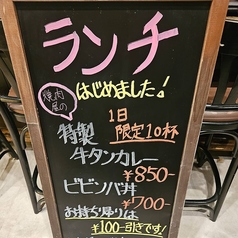 ランチ
はじめました!
焼肉屋の
1日
限定10杯
特製
牛タンカレー
¥850-
ビビンバ丼
¥700-
お持ち帰りは
¥100-引きです!